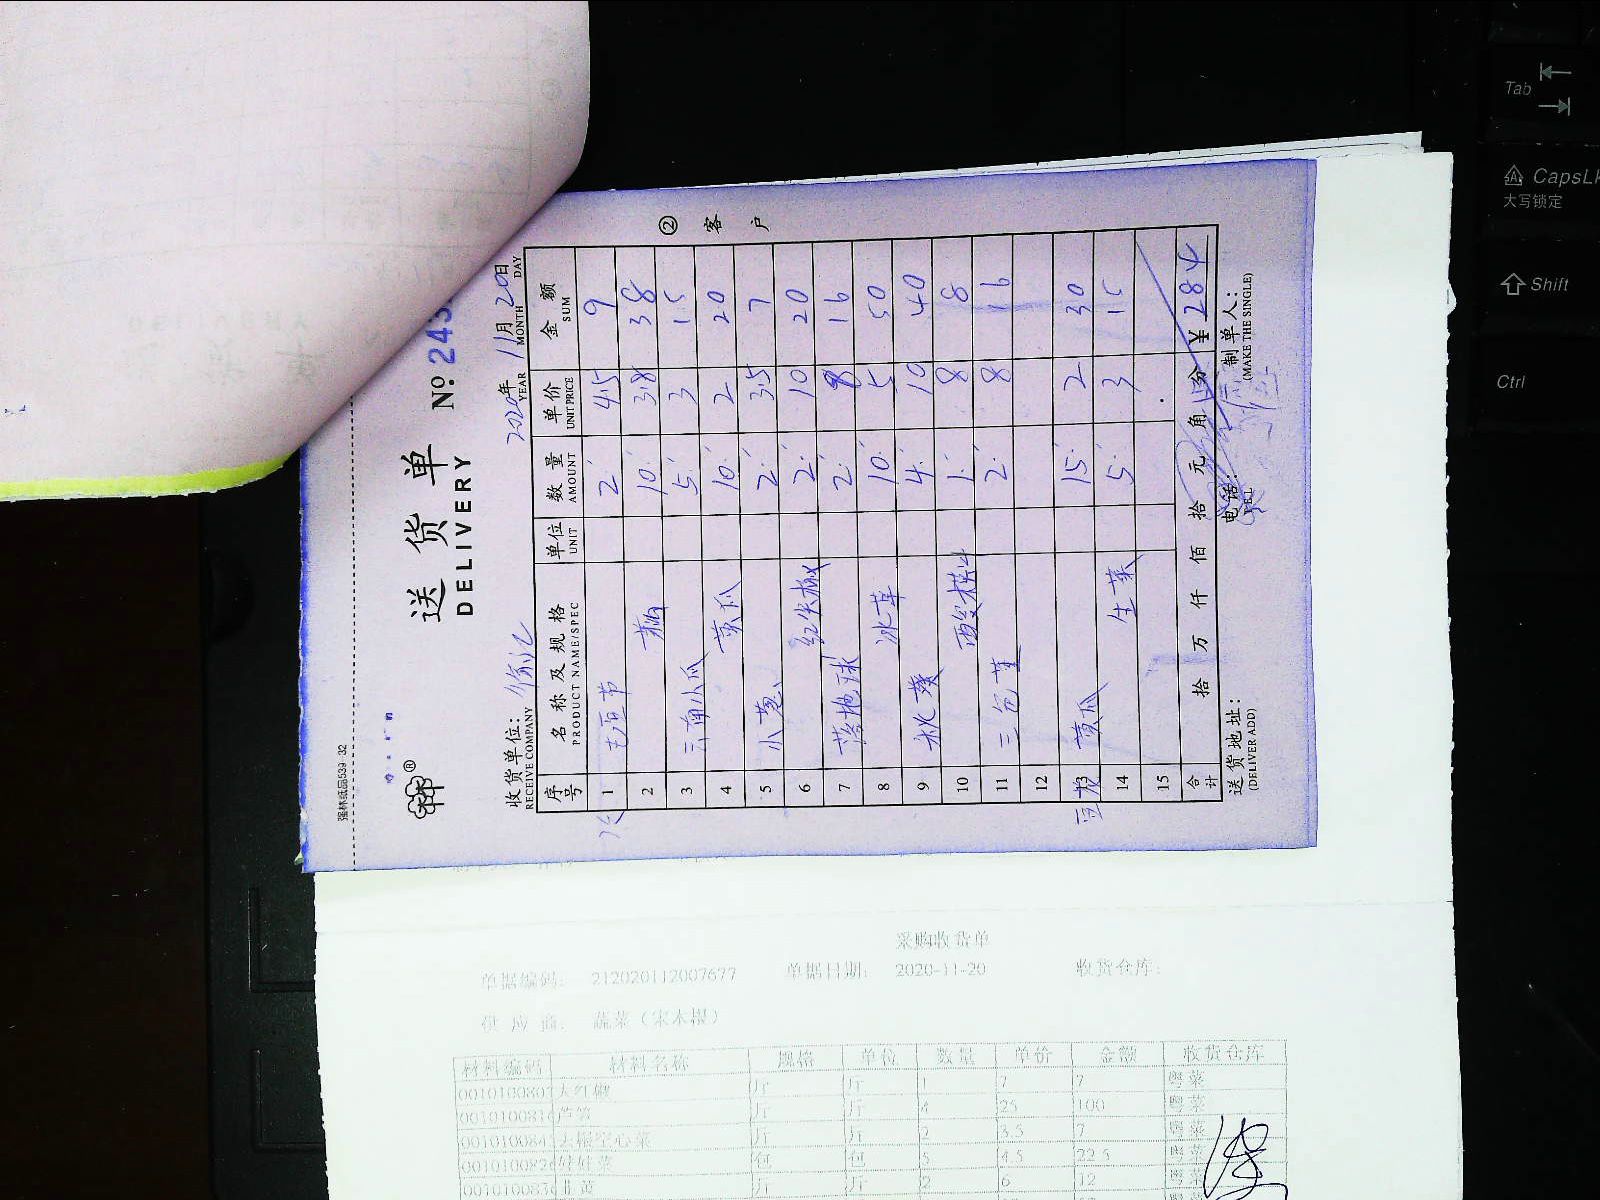 强林纸品539-32
®
送货单
DELIVERY
№ 243
收货单位：
RECEIVE COMPANY
2020年 11月 20日
YEAR MONTH DAY
序号 名称及规格 单位 数量 单价 金额
PRODUCT NAME/SPEC UNIT AMOUNT UNIT PRICE SUM
1 2 4.5 9
2 10 3.8 38
3 5 3 15
4 黄瓜 10 2 20
5 小葱 2 3.5 7
6 红尖椒 2 10 20
7 落地球 2 8 16
8 冰草 10 5 50
9 秋葵 4 10 40
10 1 8 8
11 2 8 16
12
13 黄瓜 15 2 30
14 生菜 5 3 15
15
合计 拾 万 仟 佰 拾 元 角 分 ¥ 284
送货地址：
(DELIVER ADD)
电话：
TEL
制单人：
(MAKE THE SINGLE)
② 客户
采购收货单
单据编码： 212020112007677 单据日期： 2020-11-20 收货仓库：
供应商： 蔬菜（宋本根）
材料编码 材料名称 规格 单位 数量 单价 金额 收货仓库
大红椒 斤 斤 1 7 7 粤菜
芦笋 斤 斤 4 25 100 粤菜
大根空心菜 斤 斤 2 3.5 7 粤菜
娃娃菜 包 包 5 4.5 22.5 粤菜
韭黄 斤 斤 2 6 12 粤菜
Tab
CapsLk
大写锁定
Shift
Ctrl